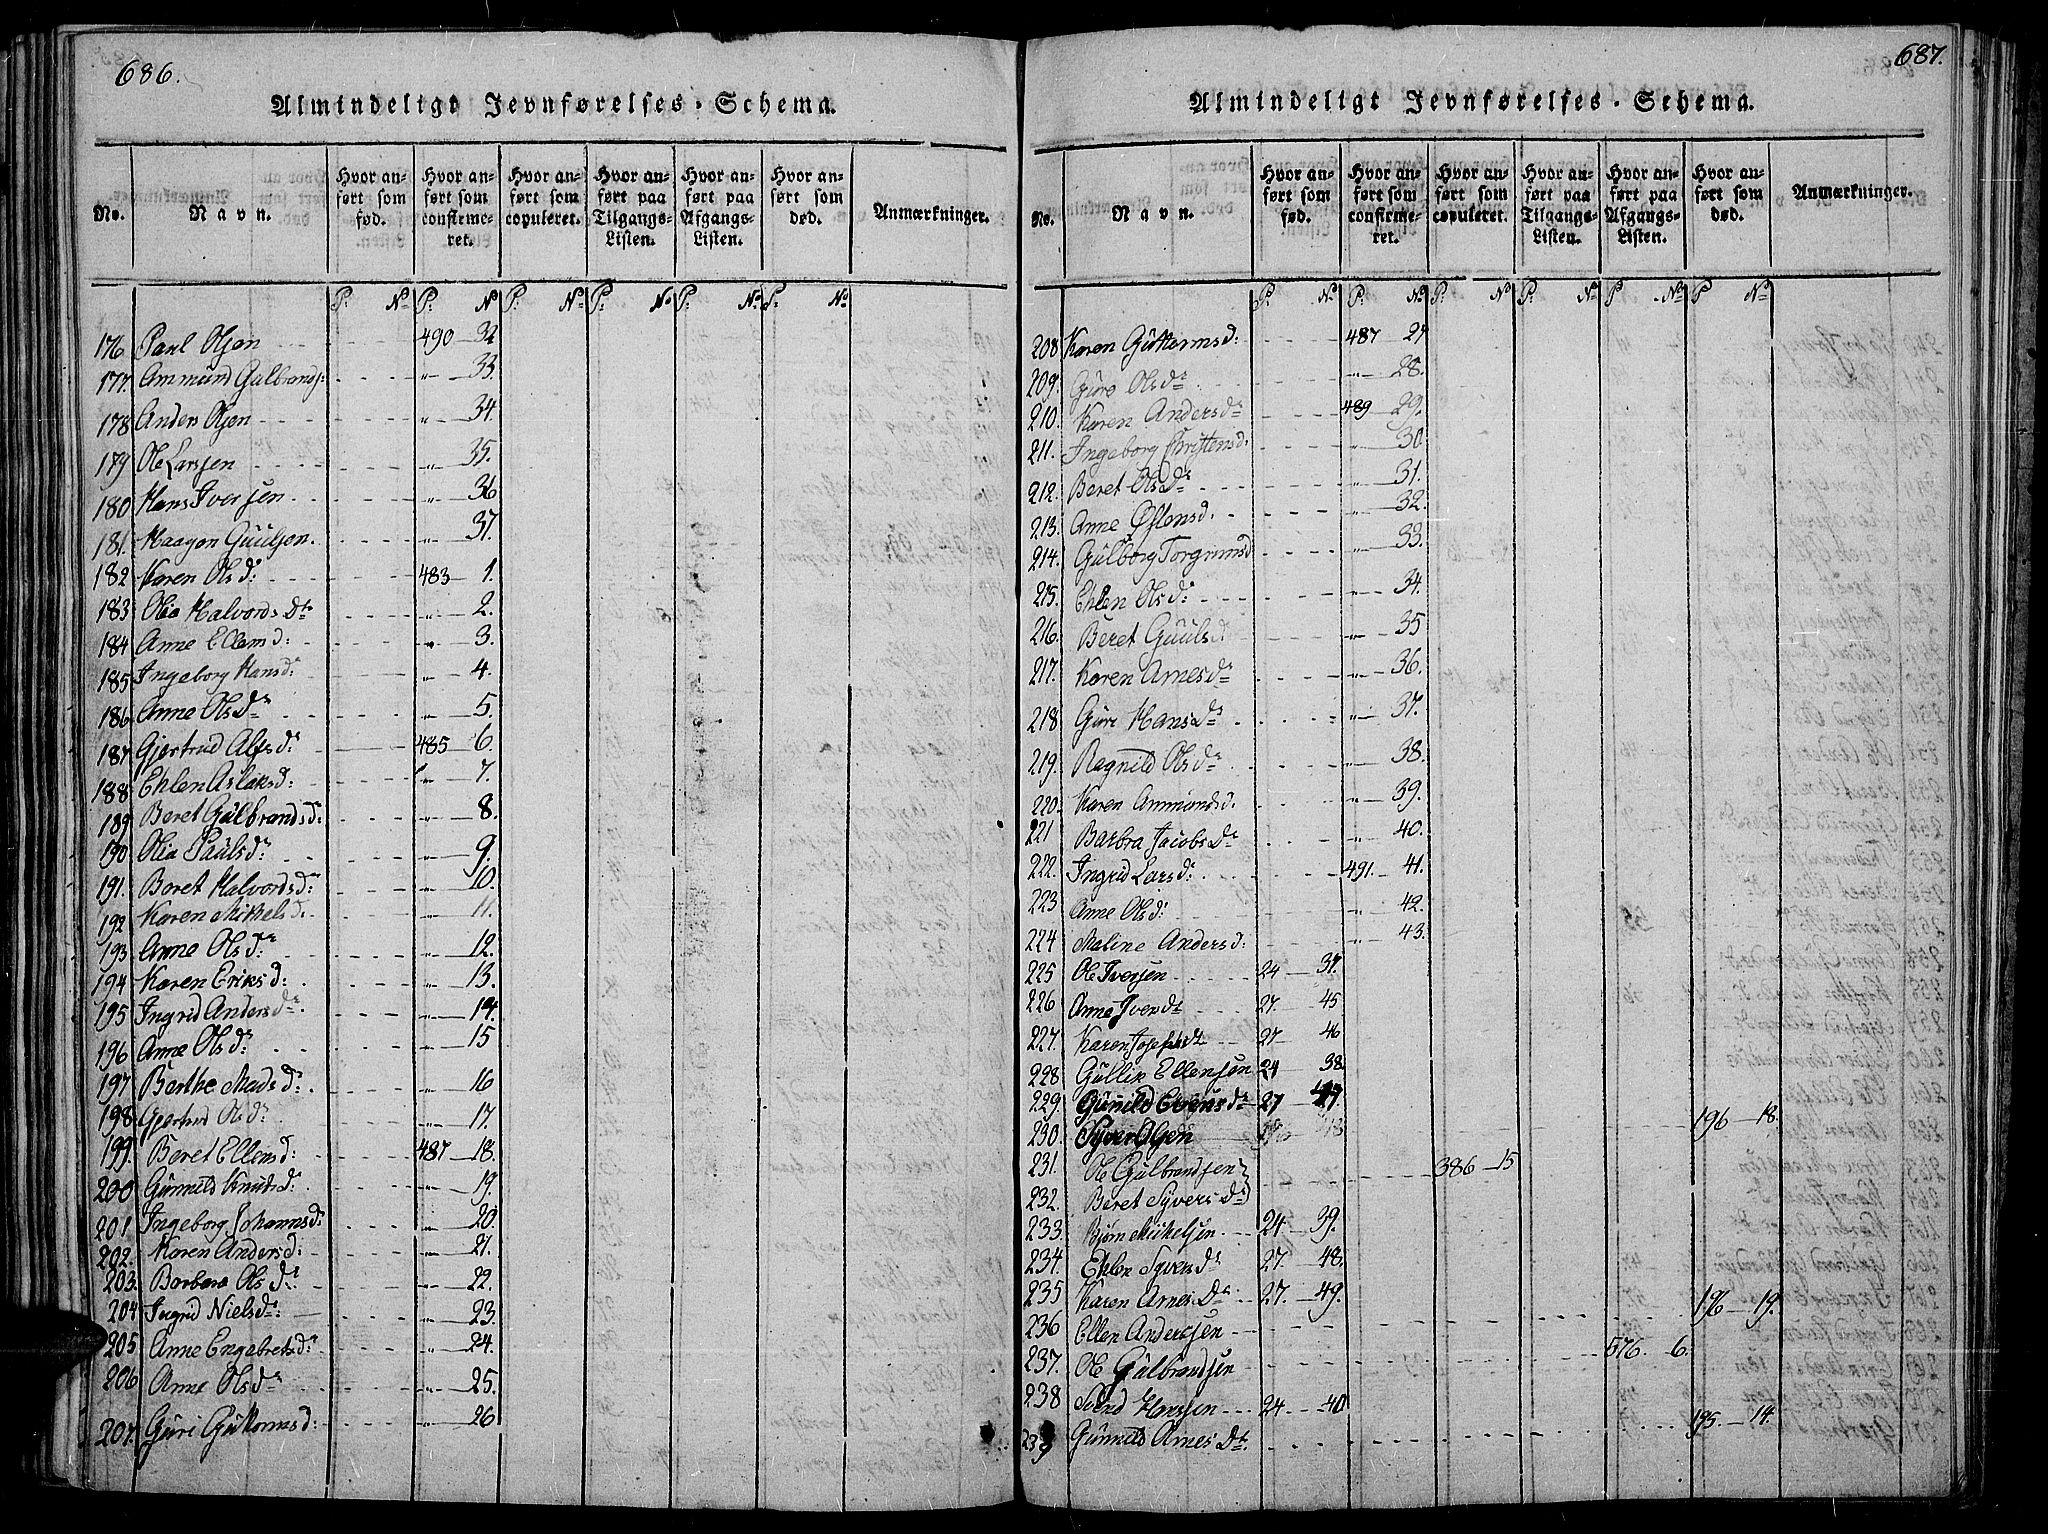 686.
Almindeligt Jevnførelses-Schema.
No. Navn. Hvor anført som fød. Hvor anført som confirmeret. Hvor anført som copuleret. Hvor anført paa Tilgangs-Listen. Hvor anført paa Afgangs-Listen. Hvor anført som død. Anmærkninger.
P: No P: No P: No P: No P: No P: No
176 Paul Olsen 490 32
177. Ammund Gulbrands: " 33.
178 Anders Olsen " 34.
179 Ole Larssen " 35.
180 Hans Iversen " 36
181. Haagen Guulsen. " 37.
182 Karen Olsd: 483 1.
183 Olia Halvordsdt " 2.
184 Anne Ellensd: " 3.
185 Ingeborg Hansd: " 4
186 Anne Olsdr " 5.
187 Gjertrud Alfsd: 485 6.
188 Ehlen Aslaksd: " 7.
189 Beret Gulbrandsd: " 8.
190 Olia Paulsd: " 9.
191. Beret Halvordsd: " 10.
192 Karen Mikkelsd: " 11.
193 Anne Olsd: " 12.
194 Karen Eriksd: " 13.
195 Ingrid Andersdr " 14.
196 Anne Olsd: " 15
197 Berthe Madsd: " 16
198 Gjertrud Olsd: " 17.
199. Beret Ellensd: 487 18.
200 Gunnild Knudsd: " 19.
201 Ingeborg Johannsd: " 20.
202. Karen Andersd: " 21.
203. Barbara Olsd: " 22.
204 Ingrid Nielsd: " 23.
205 Anne Engebretsd: " 24.
206 Anne Olsdr " 25.
207. Guri Guttormsd: " 26
687.
Almindeligt Jevnførelses-Schema.
No. Navn. Hvor anført som fød. Hvor anført som confirmeret. Hvor anført som copuleret. Hvor anført paa Tilgangs-Listen. Hvor anført paa Afgangs-Listen. Hvor anført som død. Anmærkninger.
P: No P: No P: No P: No P No P No
208 Karen Guttormsd: 487 27
209. Guro Olsdr " 28.
210. Karen Andersdr 489 29.
211. Ingeborg Christensd: " 30
212. Beret Olsdr " 31.
213. Anne Østensd. " 32.
214. Gulborg Torgrimsd " 33.
215. Ehlen Olsd: " 34.
216. Beret Guulsd " 35
217. Karen Arnesdr " 36.
218 Guri Hansdr " 37.
219. Ragnild Olsdr " 38.
220. Karen Ammundsd. " 39.
221 Barbra Jacobsdr " 40.
222. Ingrid Larsd: 491. 41.
223 Anne Olsd: " 42.
224 Maline Andersd: " 43.
225 Ole Iversen 24 37.
226 Anne Iversdt 27. 45
227. Karen Josephsdt 27 46
228 Gullik Ellensen 24 38
229. Gunild Evensdr 27 47
230. Syver Olsen 196 18.
231. Ole Gulbrandsen } 386 15
232. Beret Syversdr
233. Bjørn Mikkelsen 24 39.
234. Ehlen Syversdr 27. 48.
235 Karen Arnesdr 27. 49.
236 Ellen Andersen 196 19.
237. Ole Gulbrandsen 576 6.
238 Svend Hanssen 24 40
239 Gunnild Arnesdt. 195. 14.